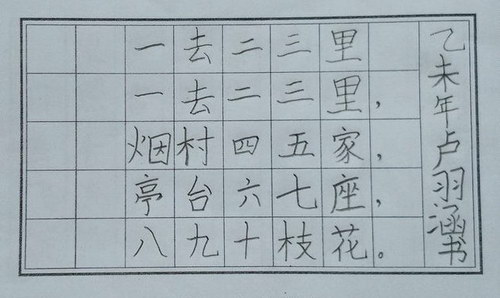 一去二三里
一去二三里，
烟村四五家，
亭台六七座，
八九十枝花。
乙未年卢羽涵书